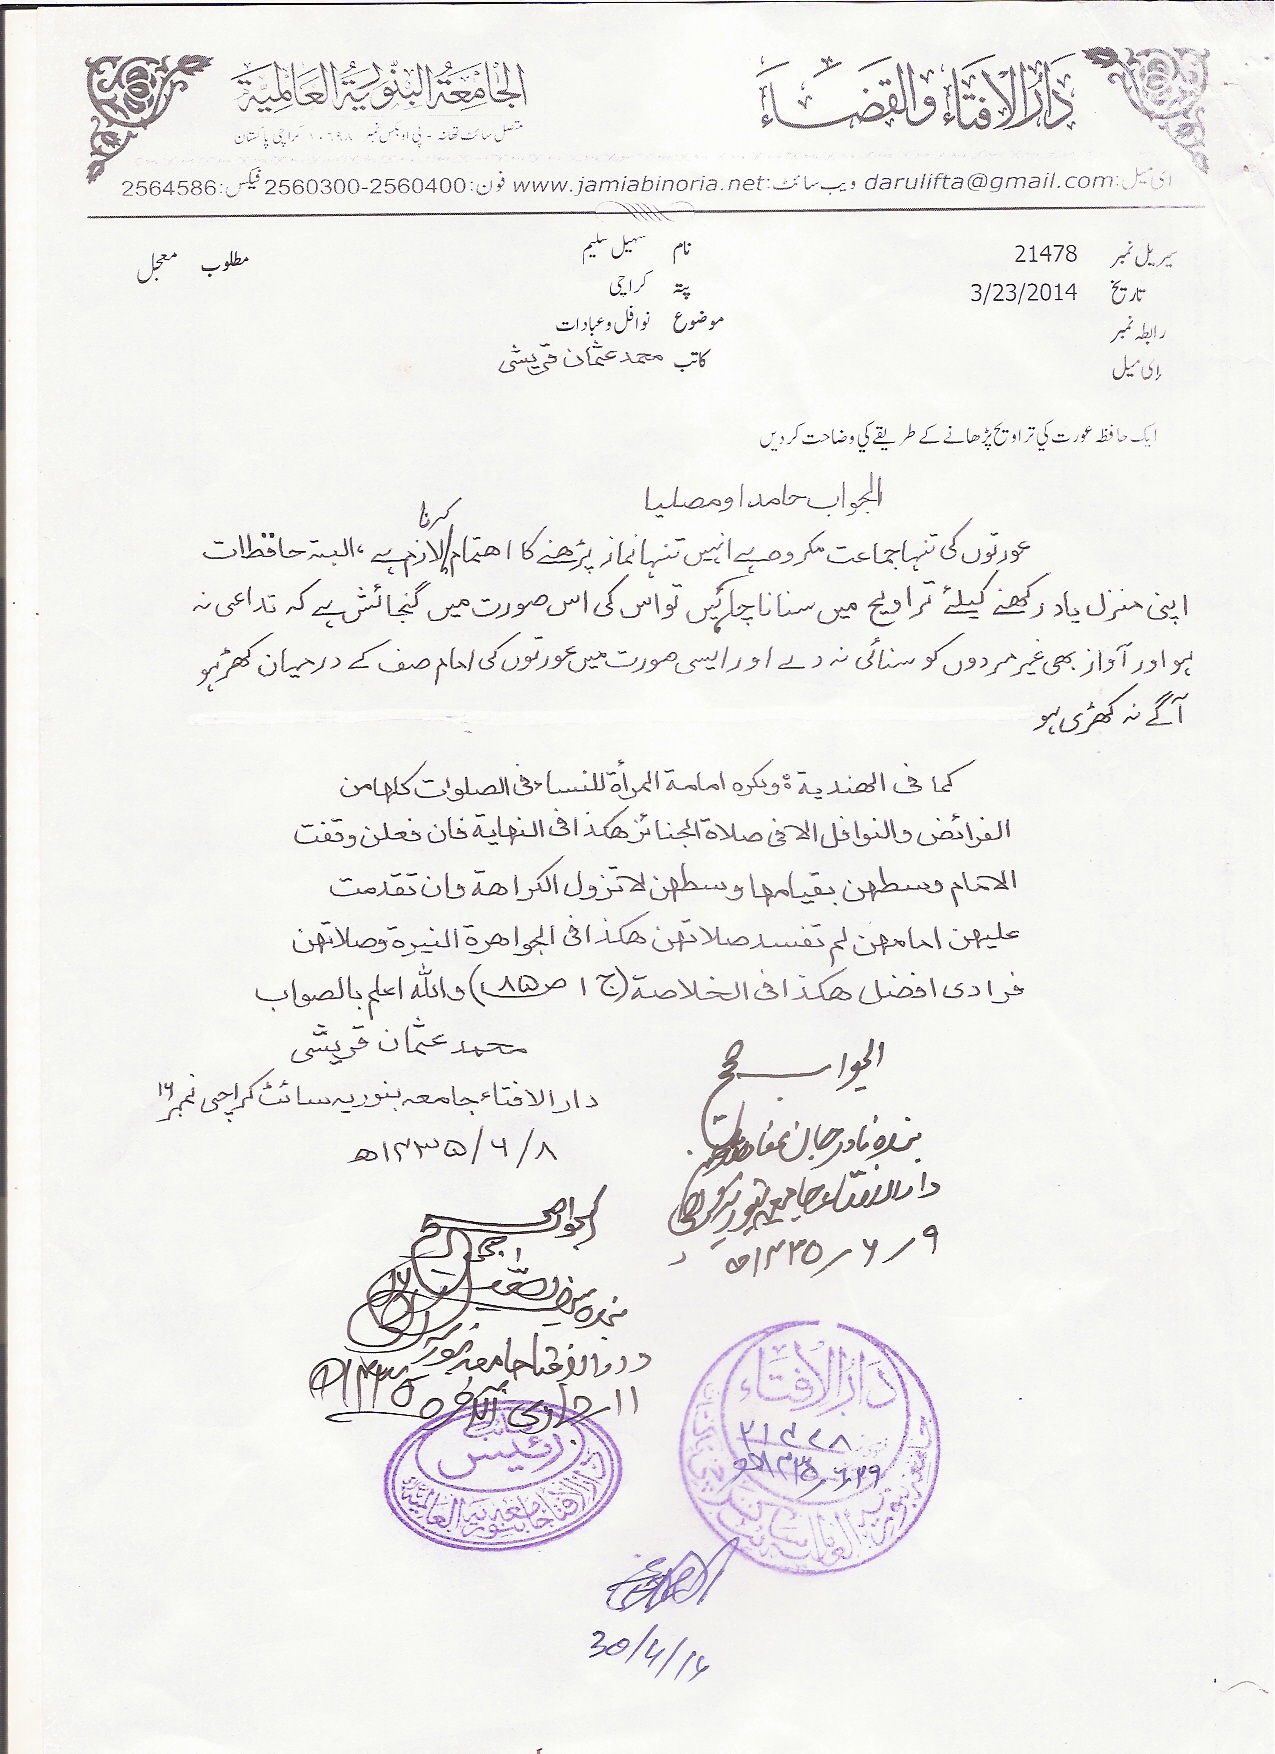 دَارُالاِفتَاء وَالقَضَاء
الجَامِعَةُ البِنّوريَةُ العَالمِيَة
متصل سائٹ تھانہ - پی او بکس نمبر ۱۰۶۹۸ کراچی پاکستان
ای میل: darulifta@gmail.com ویب سائٹ: www.jamiabinoria.net فون: 2560300-2560400 فیکس: 2564586
سیریل نمبر 21478 نام سہیل سلیم مطلوب معجل
تاریخ 3/23/2014 پتہ کراچی
رابطہ نمبر موضوع نوافل و عبادات
ای میل کاتب محمد عثمان قریشی
ایک حافظہ عورت کي تراویح پڑھانے کے طریقے کي وضاحت کر دیں
الجواب حامدا ومصلیا
عورتوں کی تنہا جماعت مکروہ ہے انہیں تنہا نماز پڑھنے کا اھتمام کرنا لازم ہے، البتہ حافظات
اپنی منزل یاد رکھنے کیلئے تراویح میں سنانا چاہیں تو اس کی اس صورت میں گنجائش ہے کہ تداعی نہ
ہو اور آواز بھی غیر مردوں کو سنائی نہ دے اور ایسی صورت میں عورتوں کی امام صف کے درمیان کھڑ ہو
آگے نہ کھڑی ہو
کما فی الھندیة: ویکرہ امامة المرأة للنساء فی الصلوات کلھا من
الفرائض والنوافل الا فی صلاة الجنائز ھکذا فی النھایة فان فعلن وقفت
الامام وسطھن بقیامھا وسطھن لا تزول الکراھة وان تقدمت
علیھن امامھن لم تفسد صلاتھن ھکذا فی الجواھرة النیرة وصلاتھن
فرادی افضل ھکذا فی الخلاصة (ج ۱ ص ۸۵) واللہ اعلم بالصواب
محمد عثمان قریشی
دار الافتاء جامعہ بنوریہ سائٹ کراچی نمبر ۱۶
۸/۶/۱۴۳۵ھ
الجواب صحیح
بندہ نادر جان
دار الافتاء جامعہ بنوریہ کراچی
۹/۶/۱۴۳۵ھ
الجواب صحیح
بندہ
دار الافتاء جامعہ بنوریہ
۱۱ جمادی الآخرہ ۱۴۳۵ھ
دَارُالاِفتَاء
رئیس
دار الافتاء جامعہ بنوریہ العالمیة
30/4/14